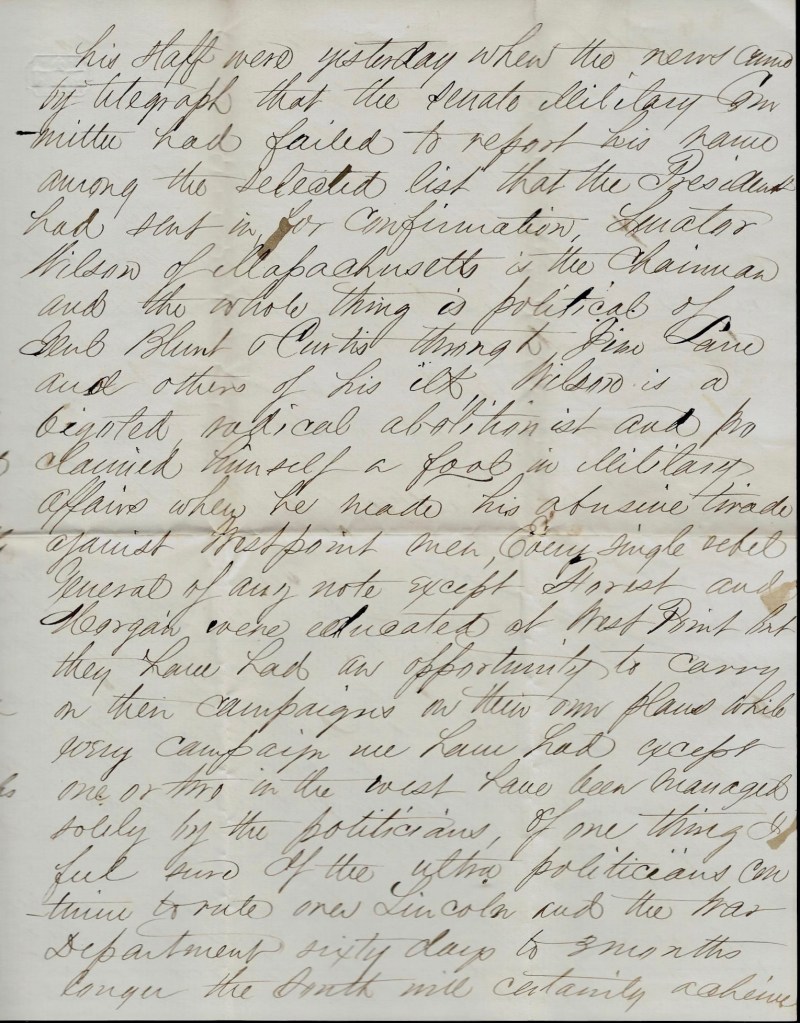 his staff were yesterday when the news came
by telegraph that the Senate Military Com
-mittee had failed to report his name
among the selected list that the President
had sent in for confirmation, Senator
Wilson of Massachusetts is the Chairman
and the whole thing is political of
Genl Blunt & Curtis through Jim Lane
and others of his ilk, Wilson is a
bigoted radical abolitionist and pro
claimed himself a fool in Military
affairs when he made his abusive tirade
against Westpoint men, Every single rebel
General of any note except Forest and
Morgan were educated at West Point but
they have had an opportunity to carry
on their campaigns on their own plans while
every campaign we have had except
one or two in the west have been managed
solely by the politicians, Of one thing I
feel sure If the ultra politicians con
-tinue to rule over Lincoln and the War
Department sixty days to 3 months
longer the South will certainly achieve